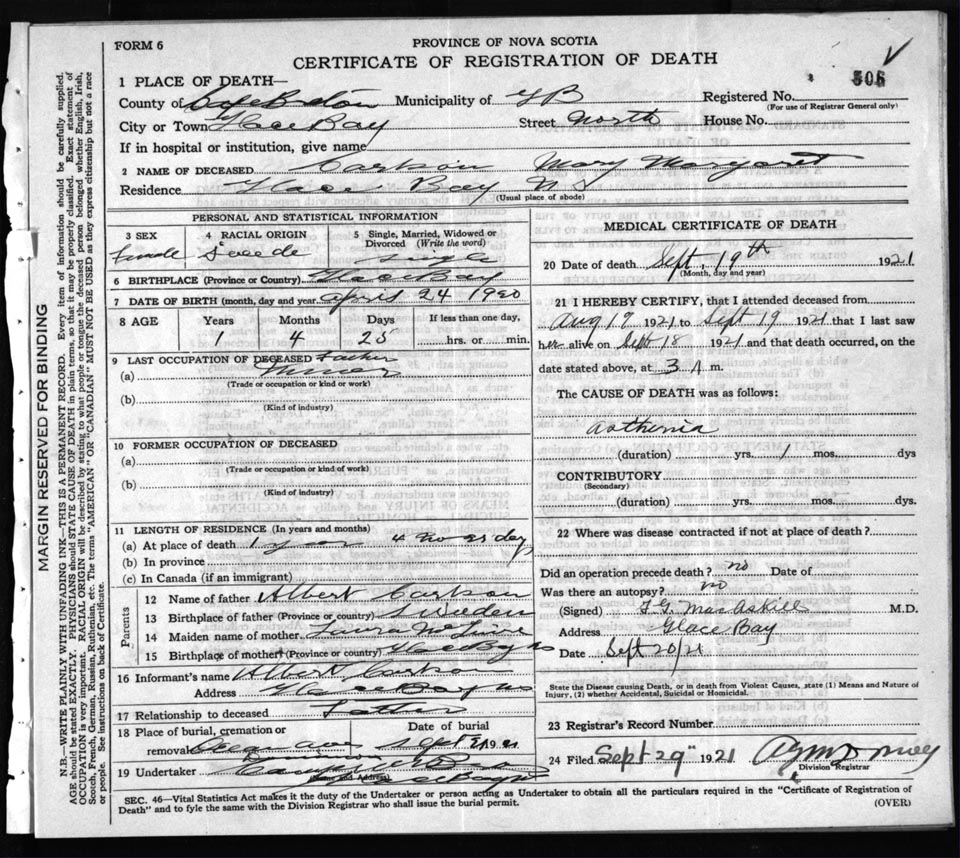 FORM 6
PROVINCE OF NOVA SCOTIA
CERTIFICATE OF REGISTRATION OF DEATH
506
1 PLACE OF DEATH—
County of Cape Breton Municipality of GB Registered No.
(For use of Registrar General only)
City or Town Glace Bay Street North House No.
If in hospital or institution, give name
2 NAME OF DECEASED Carlson Mary Margaret
Residence Glace Bay N S
(Usual place of abode)
PERSONAL AND STATISTICAL INFORMATION
3 SEX 4 RACIAL ORIGIN 5 Single, Married, Widowed or Divorced (Write the word)
Female Swede Single
6 BIRTHPLACE (Province or Country) Glace Bay
7 DATE OF BIRTH (month, day and year) April 24 1920
8 AGE Years Months Days If less than one day,
1 4 25 hrs. or min.
9 LAST OCCUPATION OF DECEASED Father
(a) Miner
(Trade or occupation or kind or work)
(b)
(Kind of industry)
10 FORMER OCCUPATION OF DECEASED
(a)
(Trade or occupation or kind of work)
(b)
(Kind of industry)
11 LENGTH OF RESIDENCE (In years and months)
(a) At place of death 1 year 4 mo 25 days
(b) In province
(c) In Canada (if an immigrant)
Parents
12 Name of father Albert Carlson
13 Birthplace of father (Province or country) Sweden
14 Maiden name of mother Laura
15 Birthplace of mother (Province or country) Glace Bay NS
16 Informant's name Albert Carlson
Address Glace Bay NS
17 Relationship to deceased Father
18 Place of burial, cremation or removal Date of burial
Sept 21 1921
19 Undertaker
(Name and Address)
MEDICAL CERTIFICATE OF DEATH
20 Date of death Sept. 19th 1921
(Month, day and year)
21 I HEREBY CERTIFY, that I attended deceased from
Aug 19 1921 to Sept 19 1921 that I last saw
her alive on Sept 18 1921 and that death occurred, on the
date stated above, at 3 A m.
The CAUSE OF DEATH was as follows:
asthenia
(duration) yrs. 1 mos. dys
CONTRIBUTORY
(Secondary)
(duration) yrs. mos. dys.
22 Where was disease contracted if not at place of death?
Did an operation precede death? no Date of
Was there an autopsy? no
(Signed) F G MacAskill M.D.
Address Glace Bay
Date Sept 20/21
State the Disease causing Death, or in death from Violent Causes, state (1) Means and Nature of
Injury, (2) whether Accidental, Suicidal or Homicidal.
23 Registrar's Record Number
24 Filed Sept 29" 1921
Division Registrar
SEC. 46—Vital Statistics Act makes it the duty of the Undertaker or person acting as Undertaker to obtain all the particulars required in the "Certificate of Registration of
Death" and to fyle the same with the Division Registrar who shall issue the burial permit.
(OVER)
MARGIN RESERVED FOR BINDING
N.B.—WRITE PLAINLY WITH UNFADING INK—THIS IS A PERMANENT RECORD. Every item of information should be carefully supplied.
AGE should be stated EXACTLY. PHYSICIANS should STATE CAUSE OF DEATH in plain terms, so that it may be properly classified. Exact statement of
OCCUPATION is very important. RACIAL ORIGIN will be described by stating to what people or tongue the deceased person belonged whether English, Irish,
Scotch, French, German, Russian, Ruthenian, etc. The terms "AMERICAN" OR "CANADIAN" MUST NOT BE USED as they express citizenship but not a race
or people. See instructions on back of Certificate.